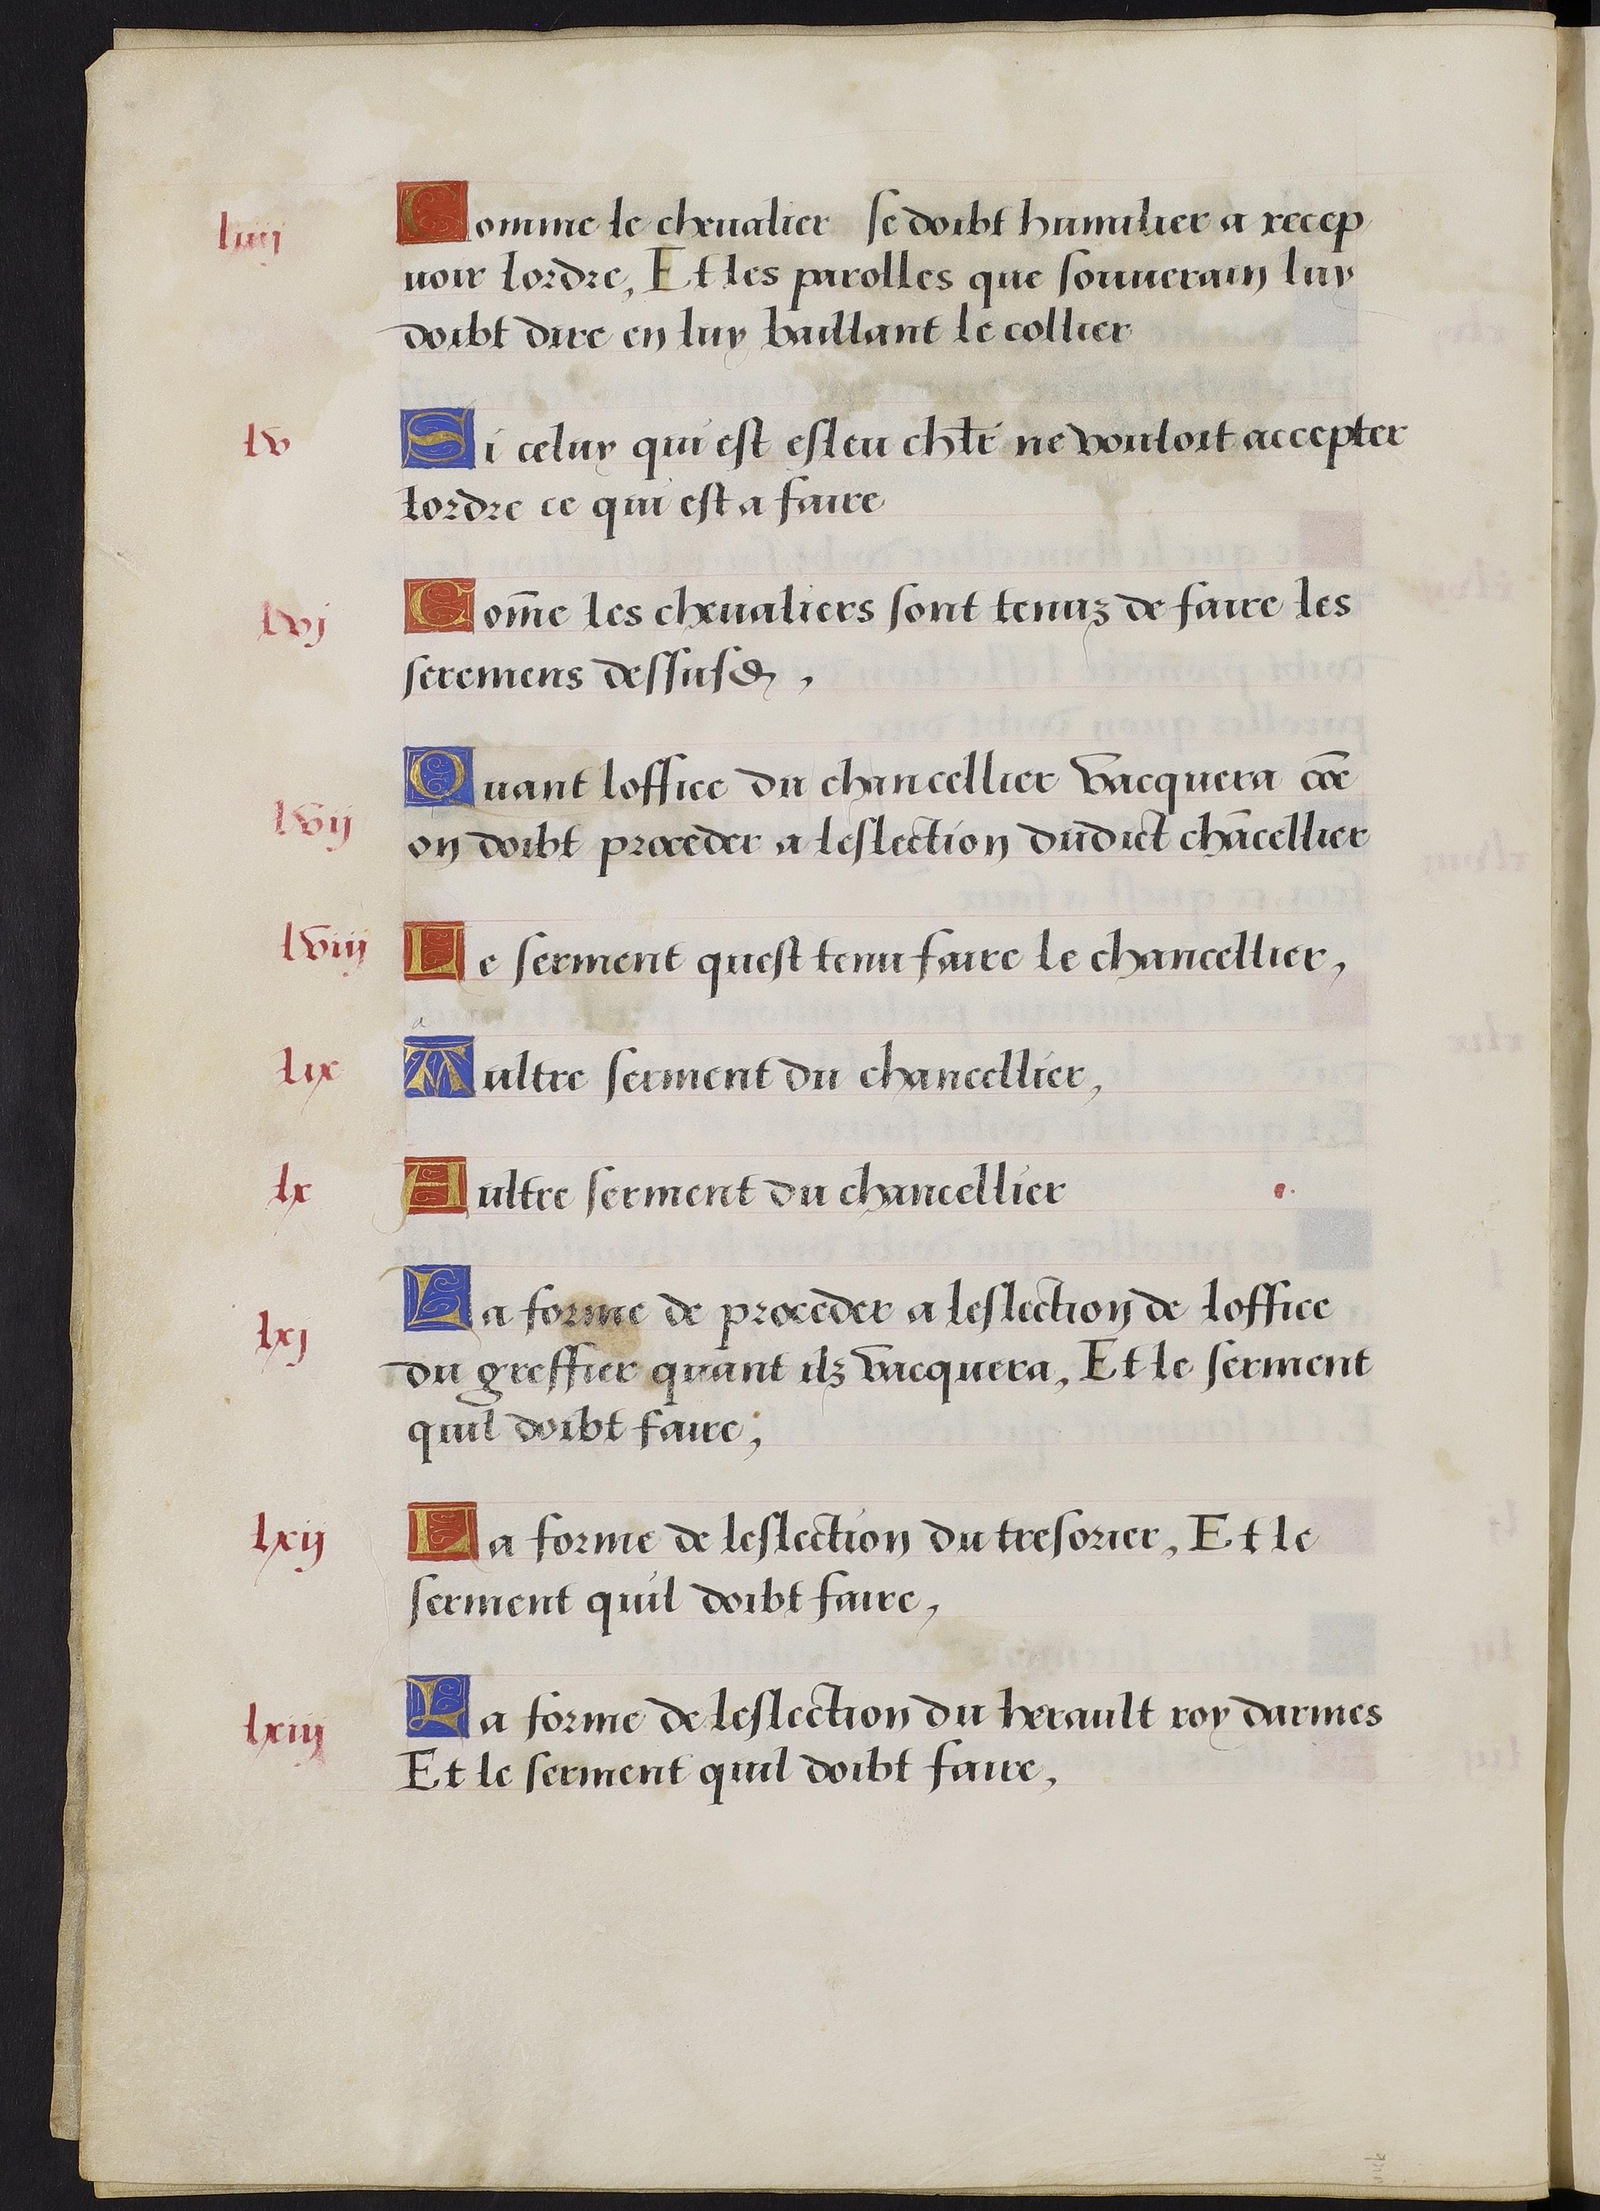 liiij Comme le cheualier se doibt humilier a recep
uoir lordre, Et les parolles que souuerain luy
doibt dire en luy baillant le collier
lv Si celuy qui est esleu chlr̄ ne vouloit accepter
lordre ce qui est a faire
lvj Com̄e les cheualiers sont tenuz de faire les
seremens dessusd,
lvij Quant loffice du chancellier vacquera cōe
on doibt proceder a leslection dudict chācellier
lviij Le serment quest tenu faire le chancellier,
a
lix Aultre serment du chancellier,
lx Aultre serment du chancellier
lxj La forme de proceder a leslection de loffice
du greffier quant ilz vacquera, Et le serment
quil doibt faire,
lxij La forme de leslection du tresorier, Et le
serment quil doibt faire,
lxiij La forme de leslection du herault roy darmes
Et le serment quil doibt faire,